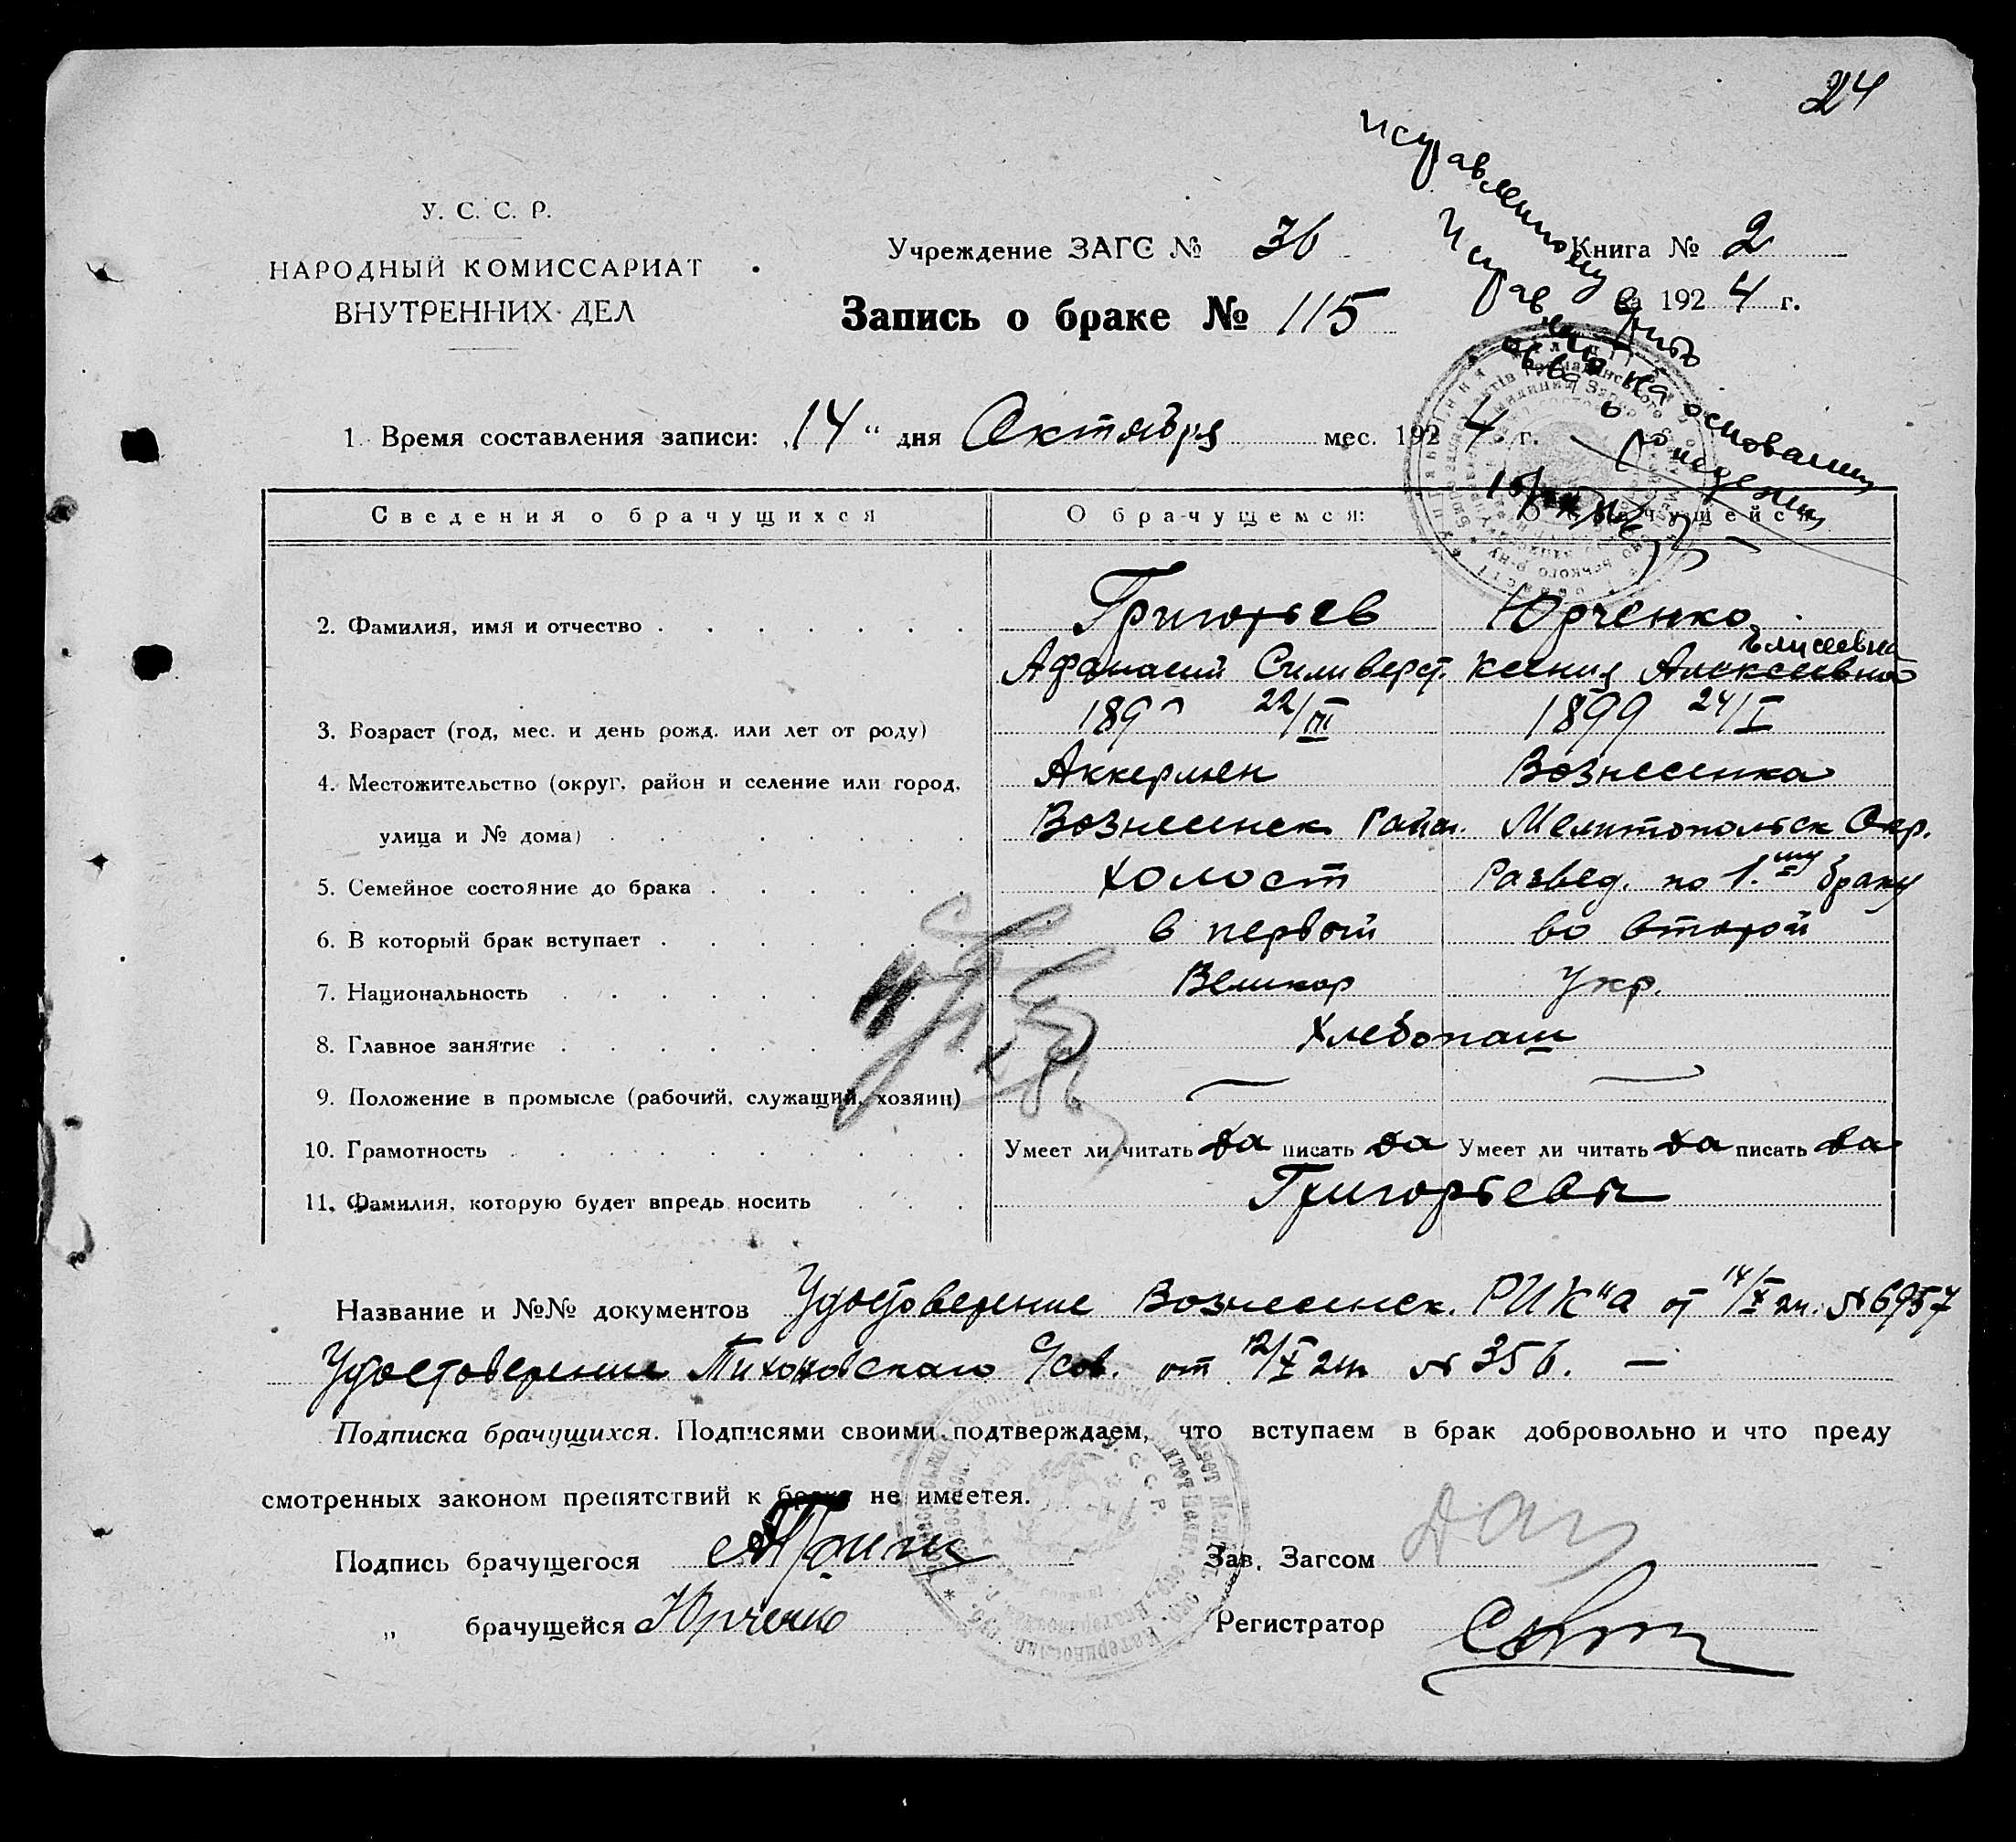 24
исправленному
У. С. С. Р.
НАРОДНЫЙ КОМИССАРИАТ
ВНУТРЕННИХ ДЕЛ
Учреждение ЗАГС № 36
Книга № 2
Запись о браке № 115
за 1924 г.
на основании
1. Время составления записи: „14“ дня Октября мес. 1924 г.
Сведения о брачущихся
О брачущемся:
О брачущейся
2. Фамилия, имя и отчество
Григорьев
Юрченко
Елисеевна
Афанасий Сильверст.
Ксения Алексеевна
3. Возраст (год, мес. и день рожд. или лет от роду)
22/III
1899 24/I
4. Местожительство (округ, район и селение или город,
Аккермен
Вознесенка
улица и № дома)
Вознесенск. Район.
Мелитопольск Окр.
5. Семейное состояние до брака
холост
Развед. по 1.му браку
6. В который брак вступает
в первый
во второй
7. Национальность
Великор
Укр.
8. Главное занятие
Хлебопаш
9. Положение в промысле (рабочий, служащий, хозяин)
10. Грамотность
Умеет ли читать да писать да
Умеет ли читать да писать да
11. Фамилия, которую будет впредь носить
Григорьевы
Название и №№ документов Удостоверение Вознесенск. РИК"а от 14/X 24г. № 6957
Удостоверение Тихоновского с/сов. от 12/X 24г. № 356. —
Подписка брачущихся. Подписями своими подтверждаем, что вступаем в брак добровольно и что преду
смотренных законом препятствий к браку не имеется.
Подпись брачущегося
Зав. Загсом
„ брачущейся Юрченко
Регистратор